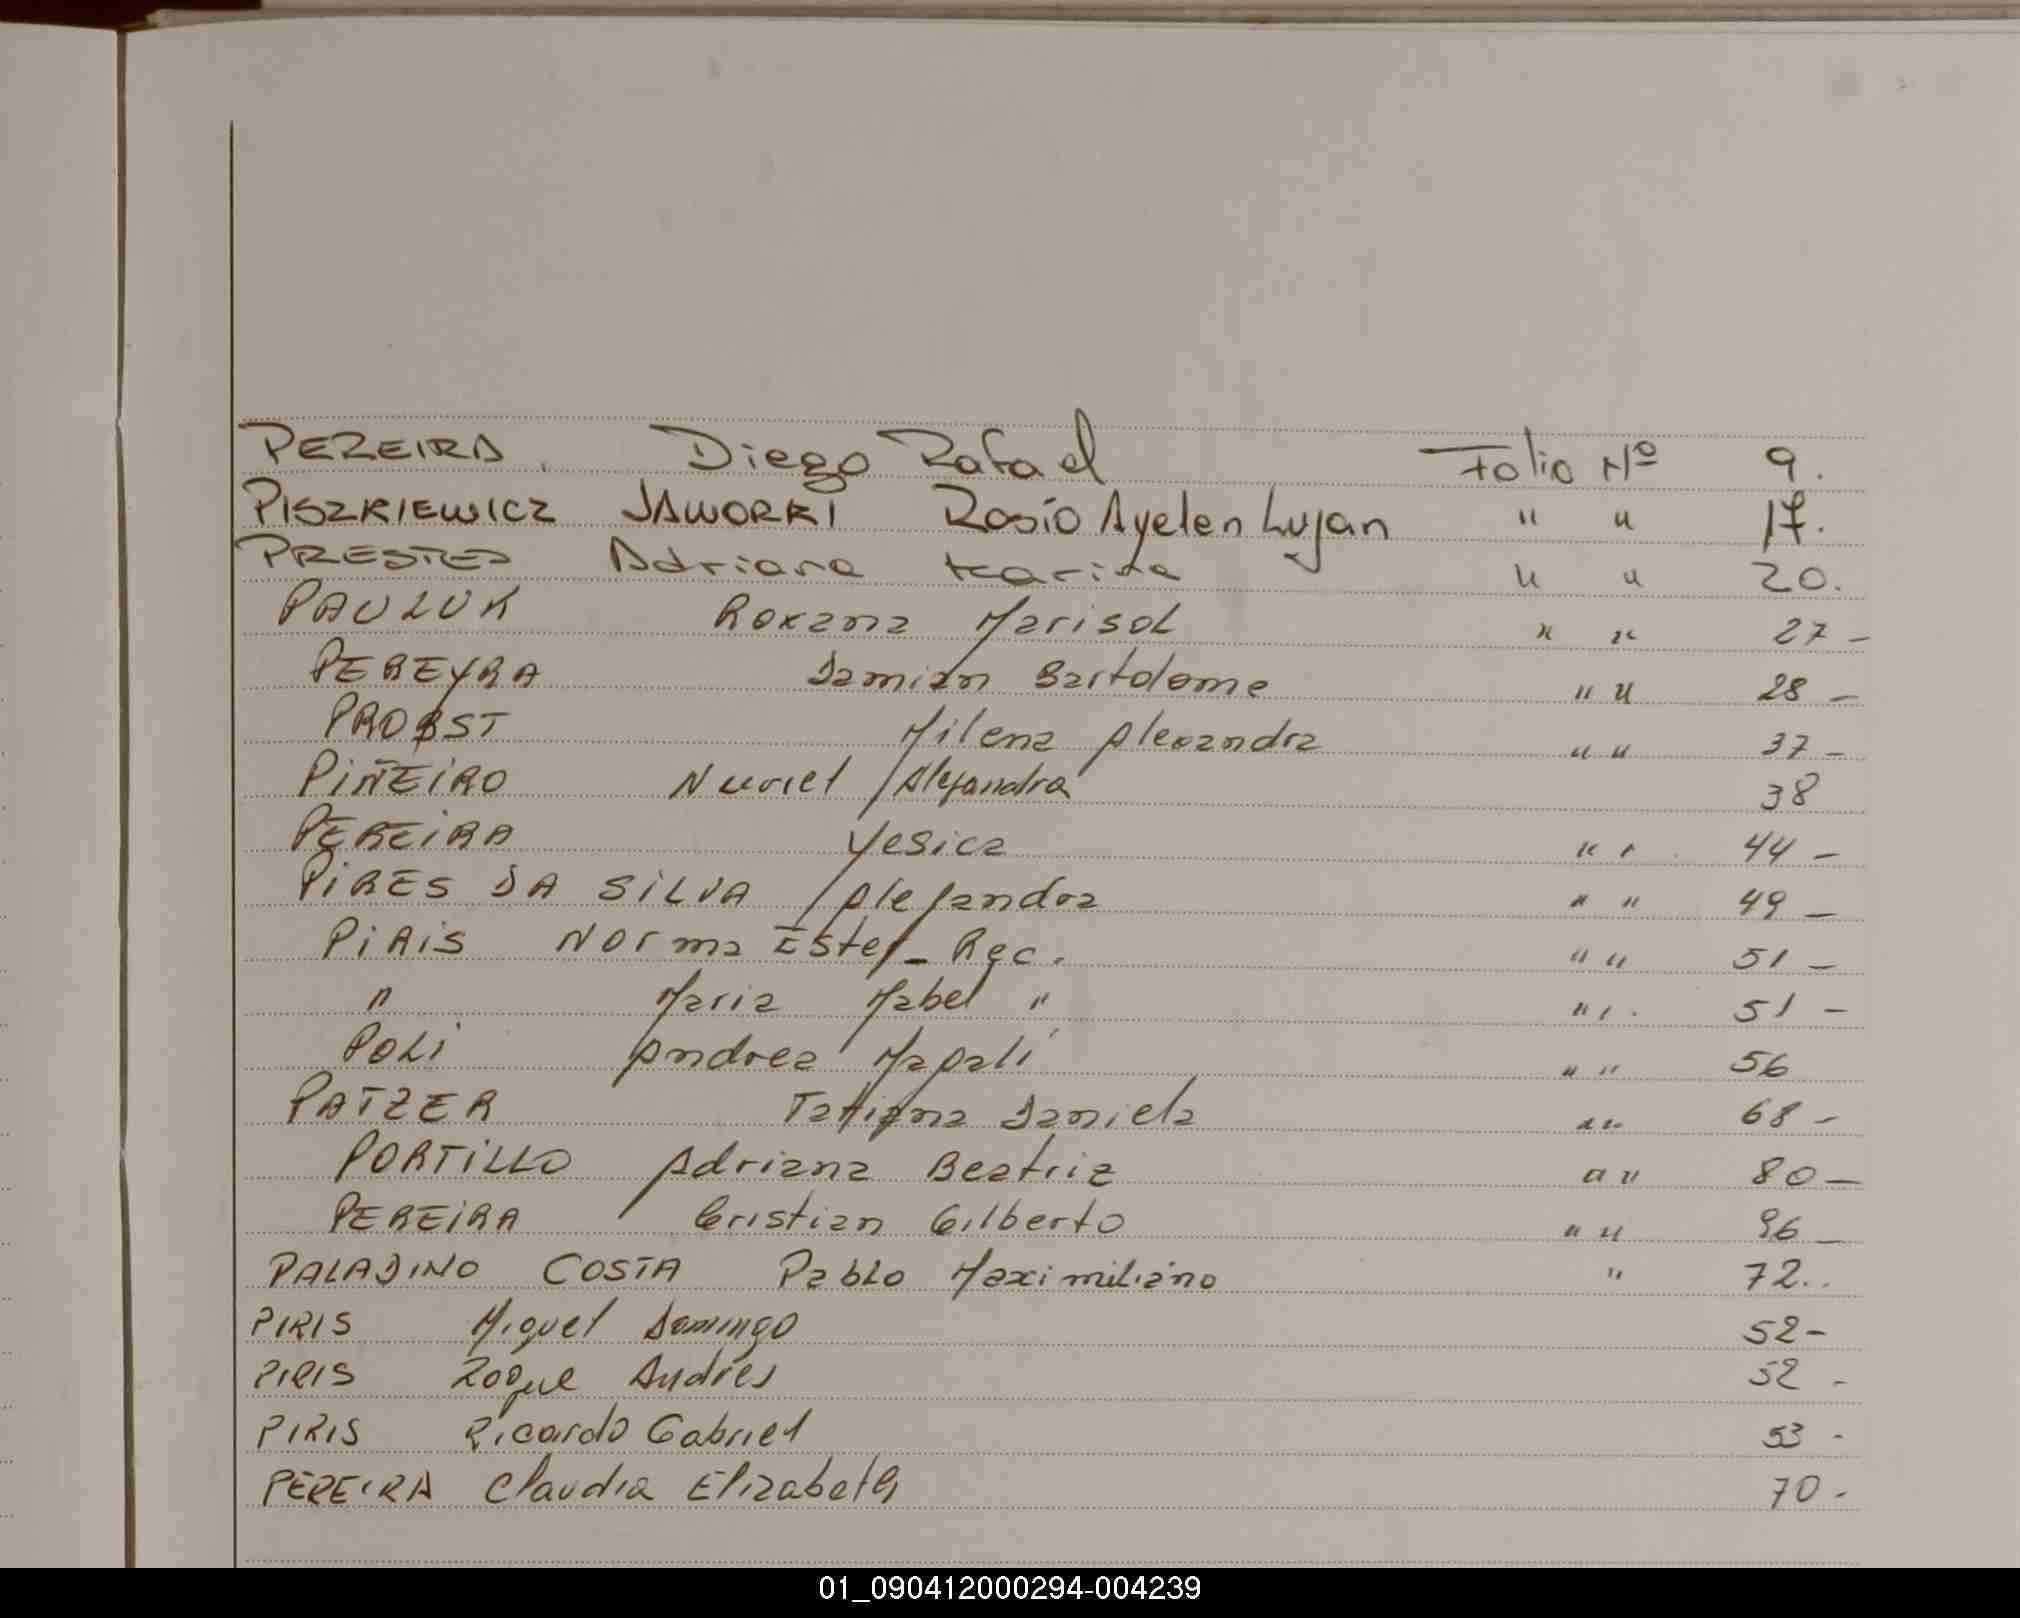 PEREIRA. Diego Rafael Folio Nº 9.
PISZKIEWICZ JAWORKI Rosío Ayelen Lujan " " 17.
PRESTES Adriana Karina " " 20.
PAULUK Roxana Marisol " " 27 -
PEREYRA Damian Bartolome " " 28 -
PROBST Milena Alexandra " " 37 -
PIÑEIRO Muriel Alejandra 38
PEREIRA Yesica " " 44 -
PIRES DA SILVA Alejandra " " 49 -
PIRIS Norma Ester - Rec. " " 51 -
" Maria Mabel " " " 51 -
POLI Andrea Magali " " 56
PATZER Tatiana Daniela " " 68 -
PORTILLO Adriana Beatriz " " 80 -
PEREIRA Cristian Gilberto " " 96 -
PALADINO COSTA Pablo Maximiliano " 72..
PIRIS Miguel Domingo 52 -
PIRIS Roque Andrés 52 -
PIRIS Ricardo Gabriel 53 -
PEREIRA Claudia Elizabeth 70 -
01_090412000294-004239